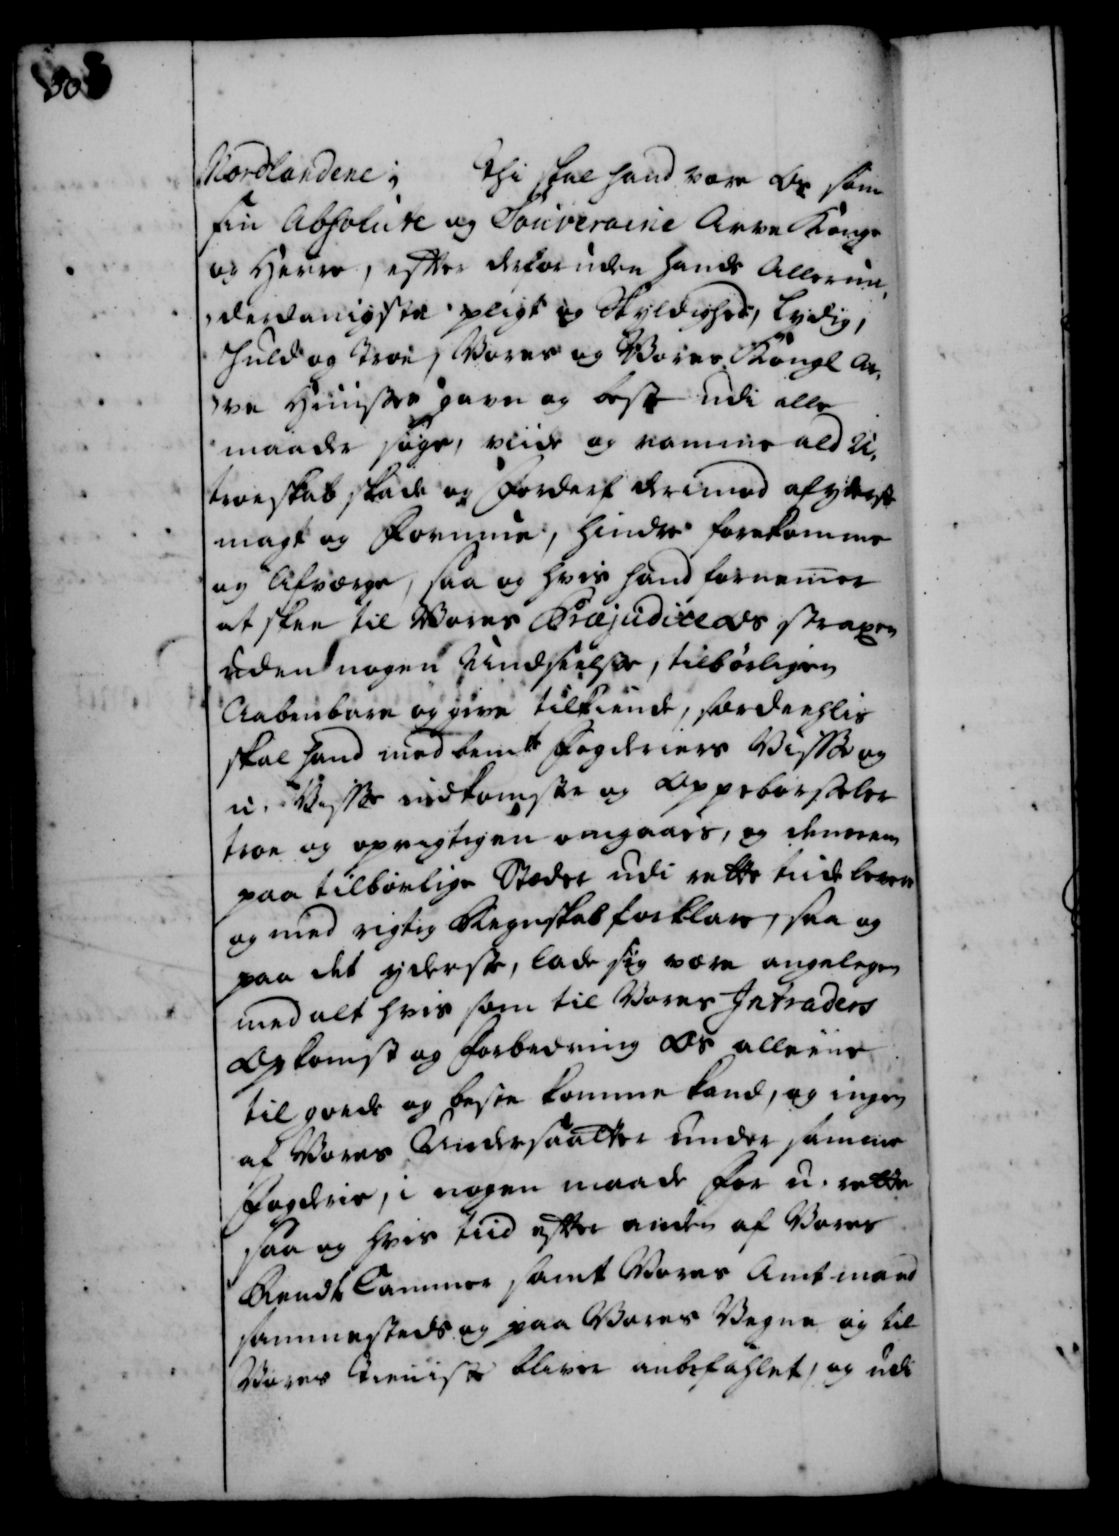 Nordlandene; Thi skal hand være Os som
sin Absolute og Souveraine Arve Konge
og Herre, efter derforuden hands Allerun,
derdanigste pligt og Skyldighed, lydig,
huld og troe, Vores og Vores Kongl Ar,
ve Huuses gavn og best udi alle
maader søge, viide og ramme ald U,
troeskab skade og Forderf derimod af yderste
magt og Formue, hindre forekomme
og Afværge, saa og hvis hand fornemmer
at skee til Vores Præjudice Os straxen
uden nogen Undseelse, tilbørligen
Aabenbare og give tilkiende, særdeehlis
skal hand med bemte Fogderiers Visse og
u. Visse indkomster og Oppebørseler
troe og oprigtigen omgaaes, og dennem
paa tilbørlige Stæder udi rette tiide levere
og med rigtig Regnskab forklare, saa og
paa det yderste, lade sig være angelegen
med alt hvis som til Vores Intraders
Opkomst og Forbedring Os alleene
til goede og beste komme kand, og ingen
af Vores Undersaatter under samme
Fogderie, i nogen maade For u. rette
saa og hvis tiid efter anden af Vores
Rendte Cammer samt Vores Amtmand
sammesteds og paa Vores Vegne og til
Vores Tieniste bliver anbefahlet, og udi